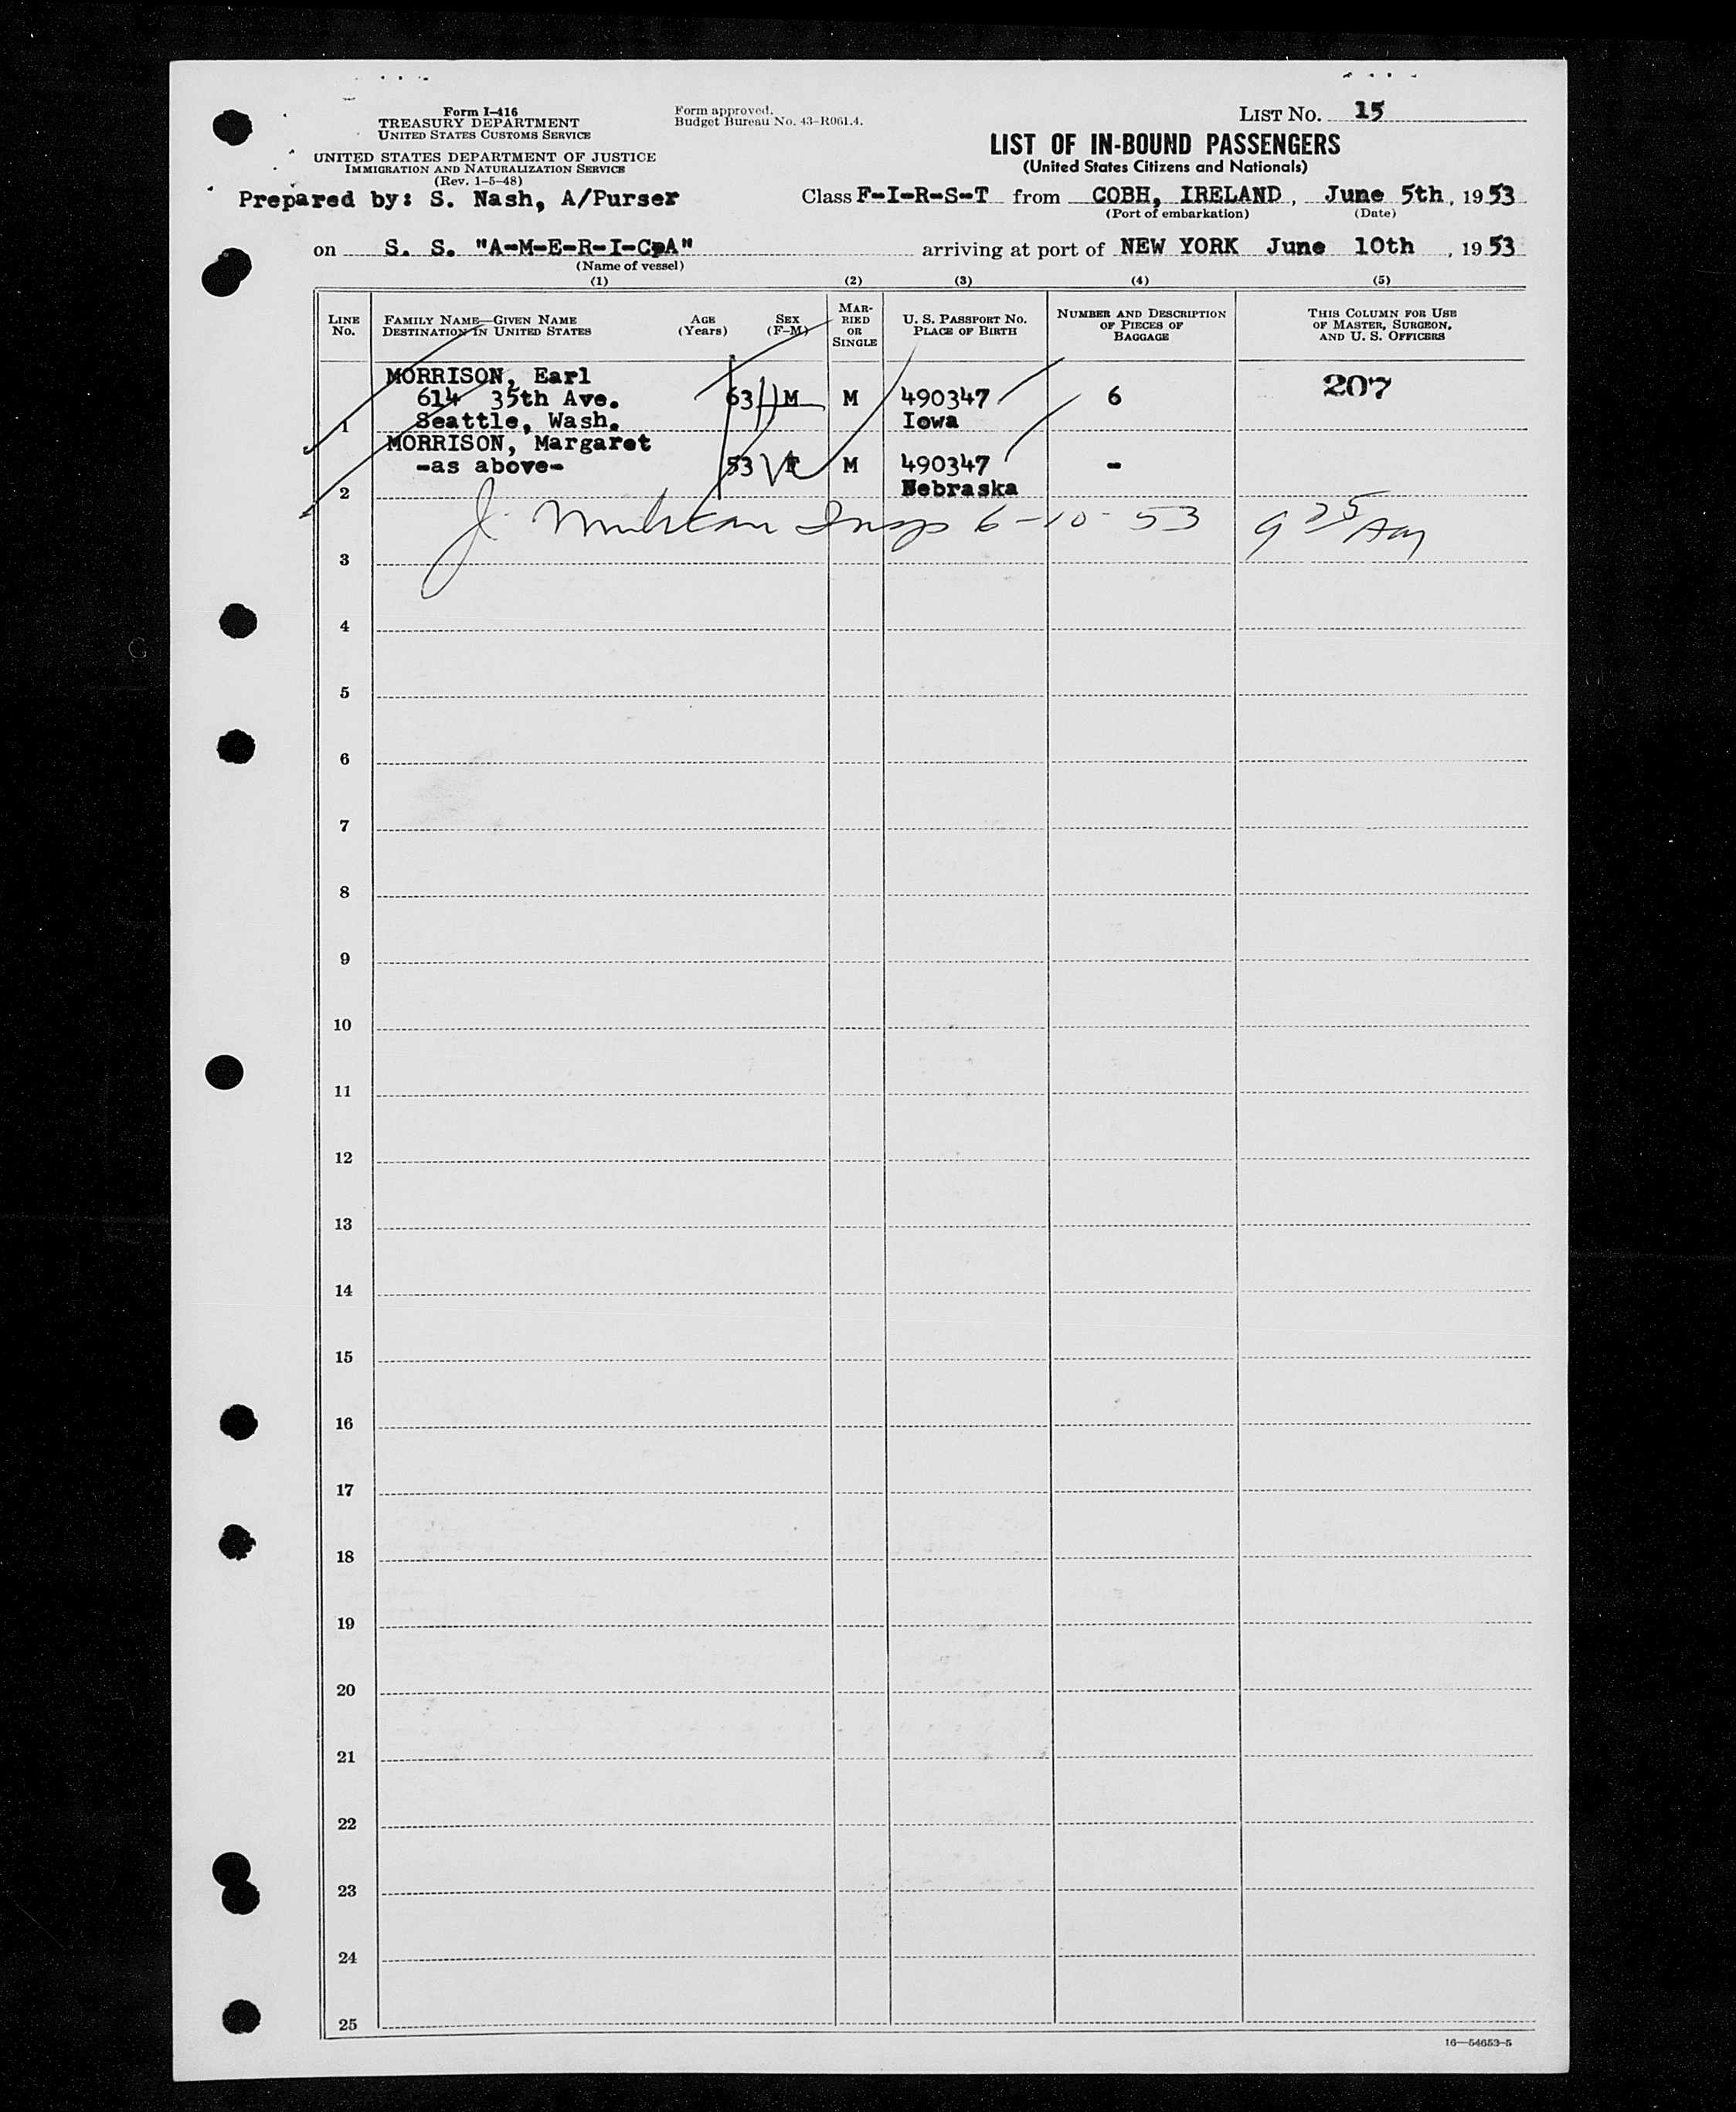 Form I-416
TREASURY DEPARTMENT
UNITED STATES CUSTOMS SERVICE
UNITED STATES DEPARTMENT OF JUSTICE
IMMIGRATION AND NATURALIZATION SERVICE
(Rev. 1-5-48)
Form approved.
Budget Bureau No. 43-R061.4.
LIST No. 15
LIST OF IN-BOUND PASSENGERS
(United States Citizens and Nationals)
Prepared by: S. Nash, A/Purser
Class F-I-R-S-T from COBH, IRELAND, June 5th, 1953
(Port of embarkation) (Date)
on S. S. "A-M-E-R-I-C-A" arriving at port of NEW YORK June 10th, 1953
(Name of vessel)
(1) (2) (3) (4) (5)
LINE No.
FAMILY NAME—GIVEN NAME
DESTINATION IN UNITED STATES
AGE (Years)
SEX (F-M)
MARRIED OR SINGLE
U. S. PASSPORT NO.
PLACE OF BIRTH
NUMBER AND DESCRIPTION OF PIECES OF BAGGAGE
THIS COLUMN FOR USE OF MASTER, SURGEON, AND U. S. OFFICERS
MORRISON, Earl
614 35th Ave. 63 M M 490347 6 207
1 Seattle, Wash. Iowa
MORRISON, Margaret
-as above- 53 F M 490347 -
2 Nebraska
J. Insp 6-10-53 9 25 Am
3
4
5
6
7
8
9
10
11
12
13
14
15
16
17
18
19
20
21
22
23
24
25
16—54653-5